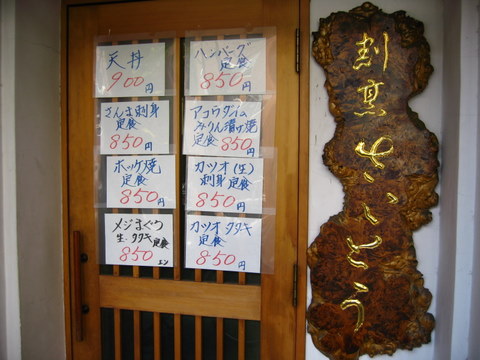 天丼
900円
ハンバーグ
定食
850円
さんま刺身
定食
850円
アコウダイの
みりん漬け焼
定食 850円
ホッケ焼
定食
850円
カツオ(生)
刺身定食
850円
メジまぐろ
生・タタキ 定食
850エン
カツオタタキ
定食
850円
割烹 さいとう